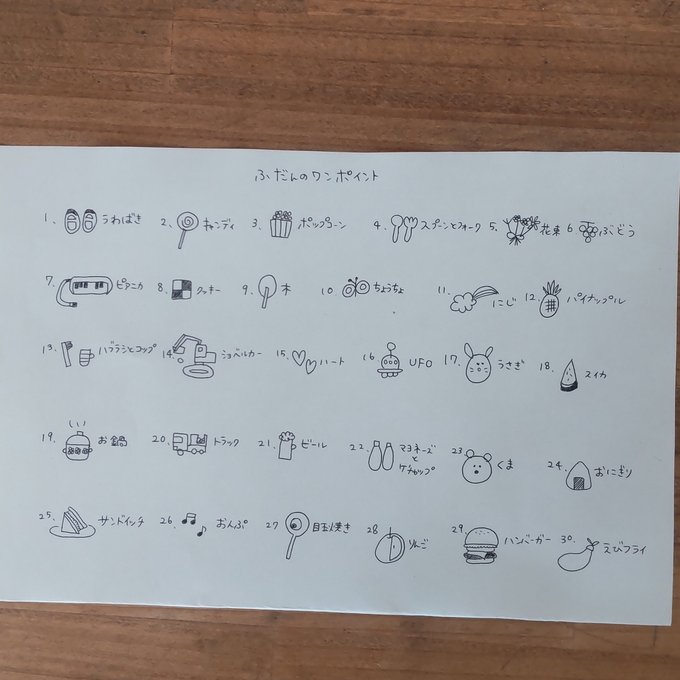 ふだんのワンポイント
1、うわばき 2、キャンディ 3、ポップコーン 4、スプーンとフォーク 5、花束 6、ぶどう
7、ピアニカ 8、クッキー 9、木 10、ちょうちょ 11、にじ 12、パイナップル
13、ハブラシとコップ 14、ショベルカー 15、ハート 16、UFO 17、うさぎ 18、スイカ
19、お鍋 20、トラック 21、ビール 22、マヨネーズとケチャップ 23、くま 24、おにぎり
25、サンドイッチ 26、おんぷ 27、目玉焼き 28、りんご 29、ハンバーガー 30、えびフライ